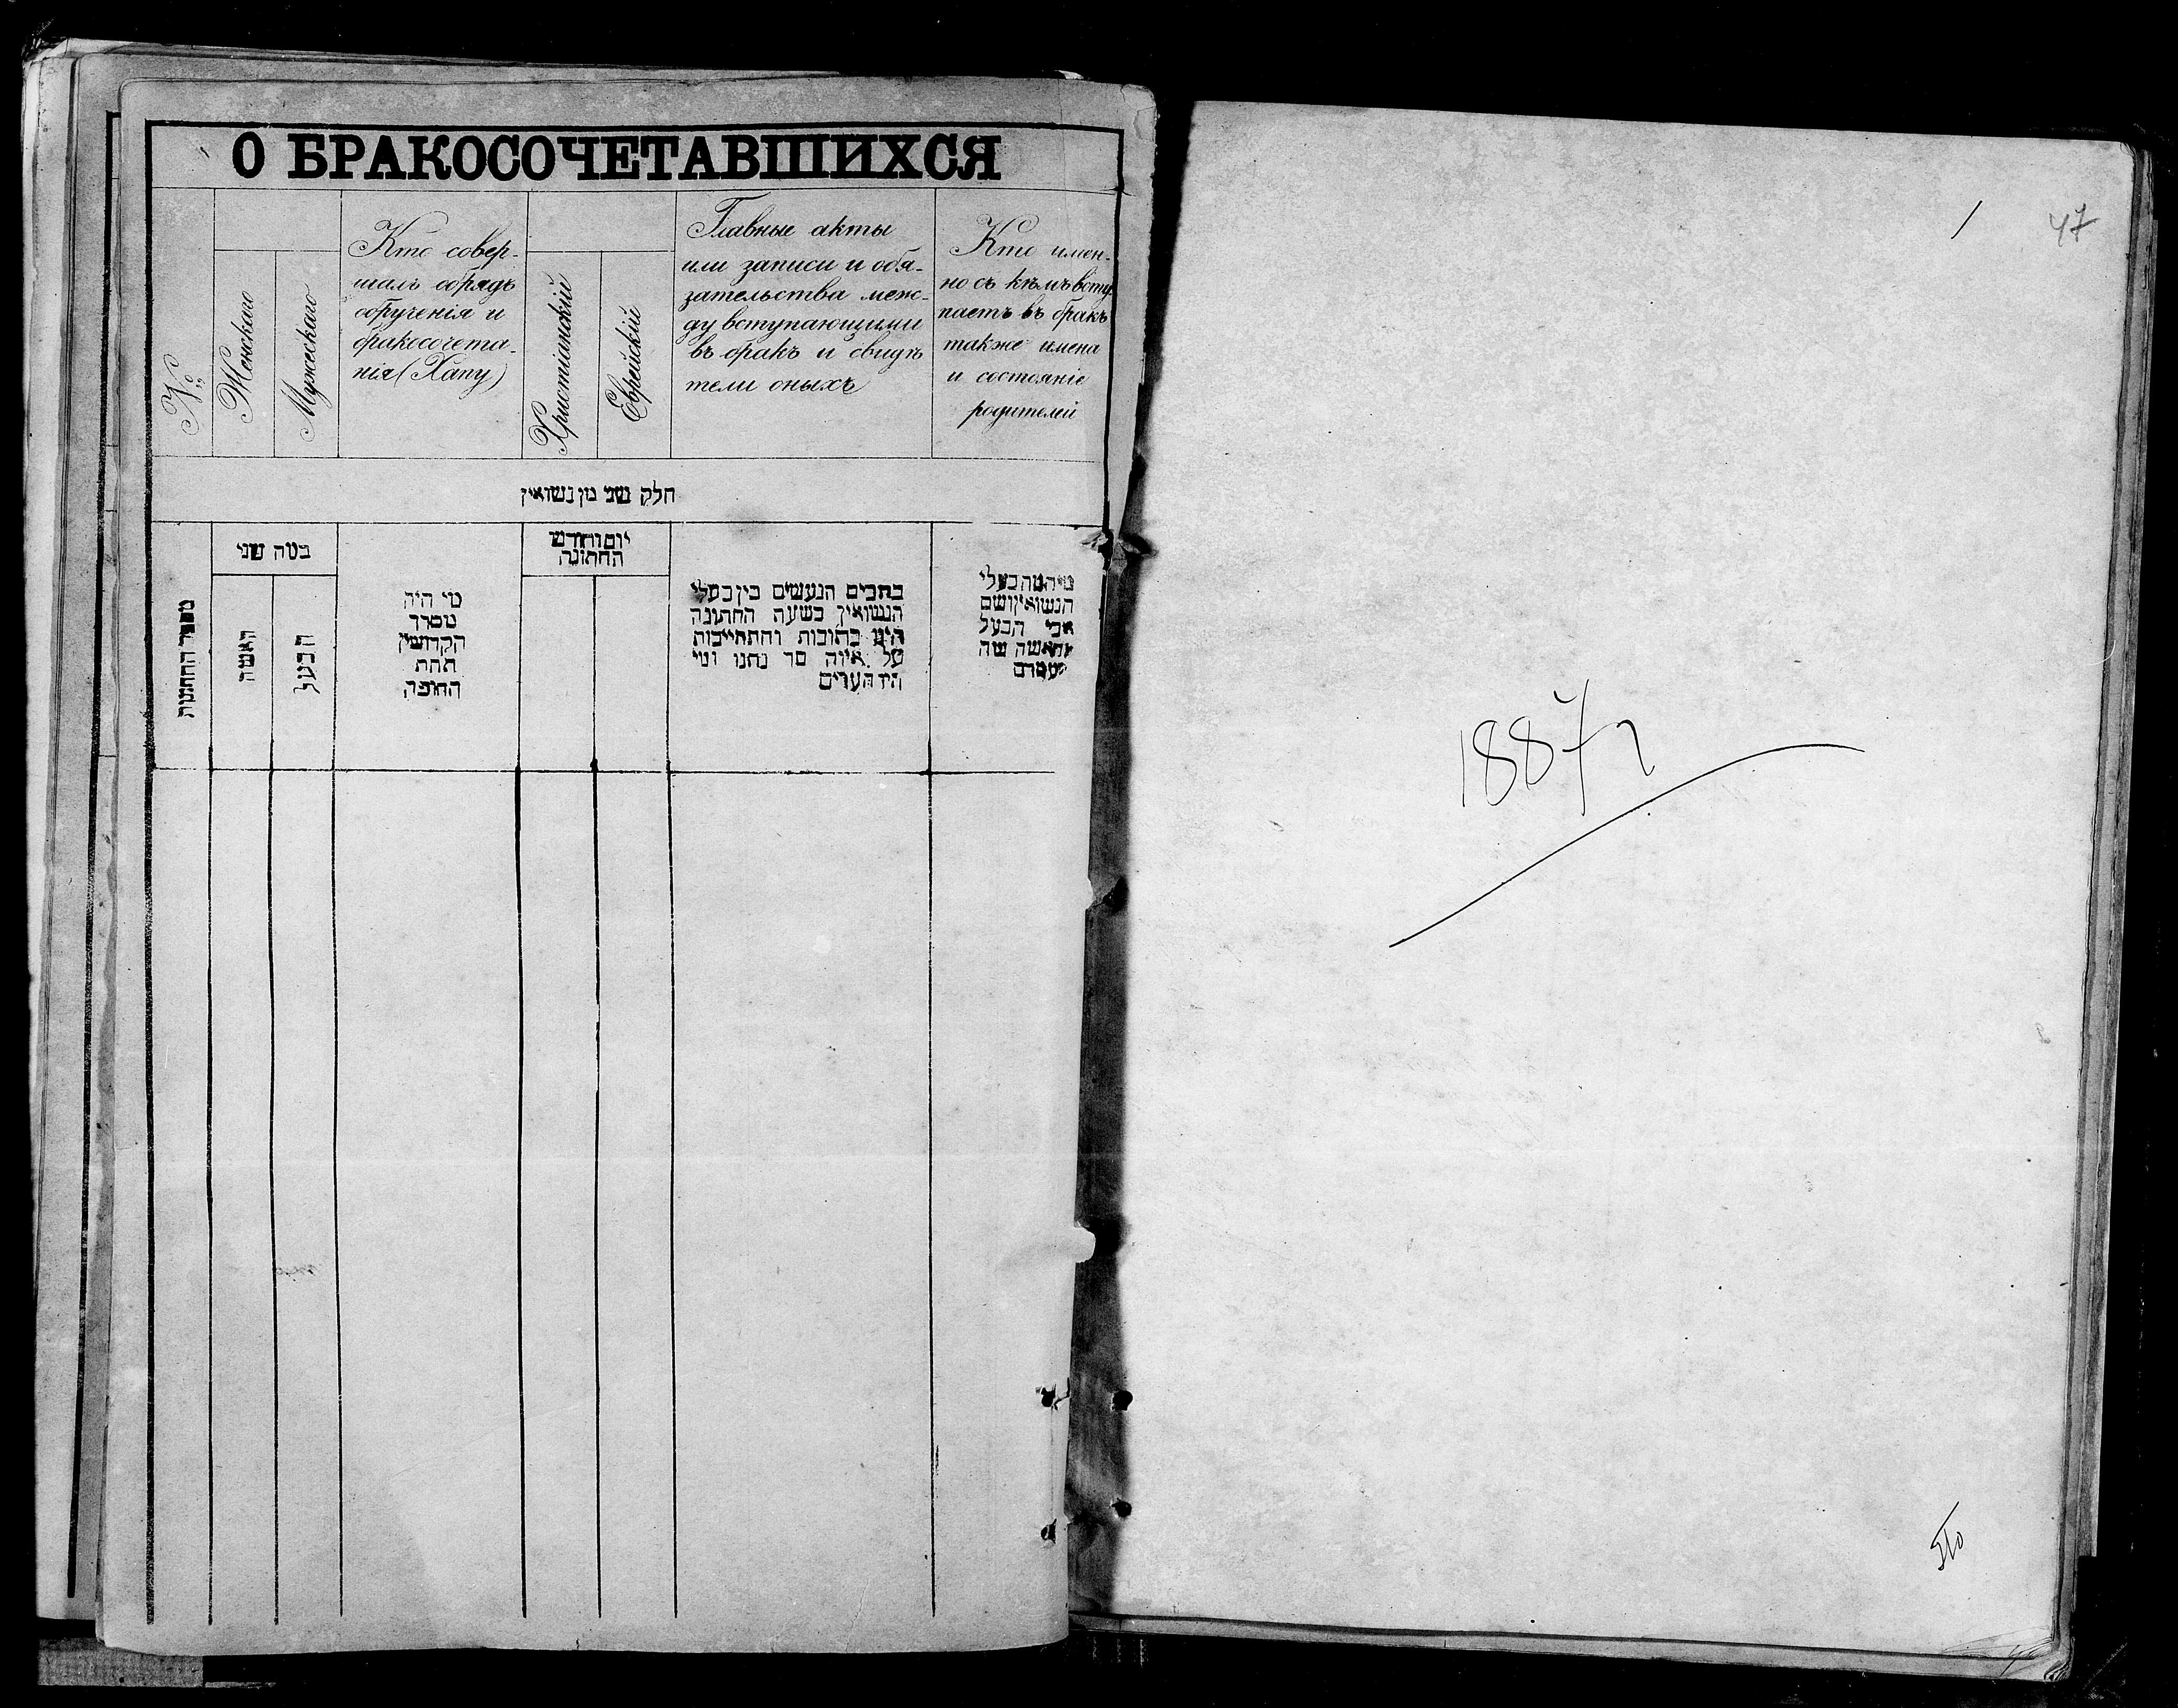 О БРАКОСОЧЕТАВШИХСЯ
№
Женскаго
Мужескаго
Кто совер-
шалъ обрядъ
обрученія и
бракосочета-
нія (Хапу)
Христіанскій
Еврейскій
Главные акты
или записи и обя-
зательства меж-
ду вступающими
въ бракъ и свидѣ
тели оныхъ
Кто имен-
но съ кѣмъ всту
паетъ въ бракъ
также имена
и состояніе
родителей
חלק שני מן נשואין
מספר החתונות
כמה שני
האשה
הבעל
מי היה
מסדר
הקדושין
תחת
החופה
יום וחדש
החתונה
כתבים הנעשים בין בעלי
הנשואין בשעה החתונה
היינו כתובות והתחייבות
על איזה סך נתנו ומי
היו העדים
מי המה בעלי
הנשואין ושם
אבי הבעל
והאשה
1
47
1887 г